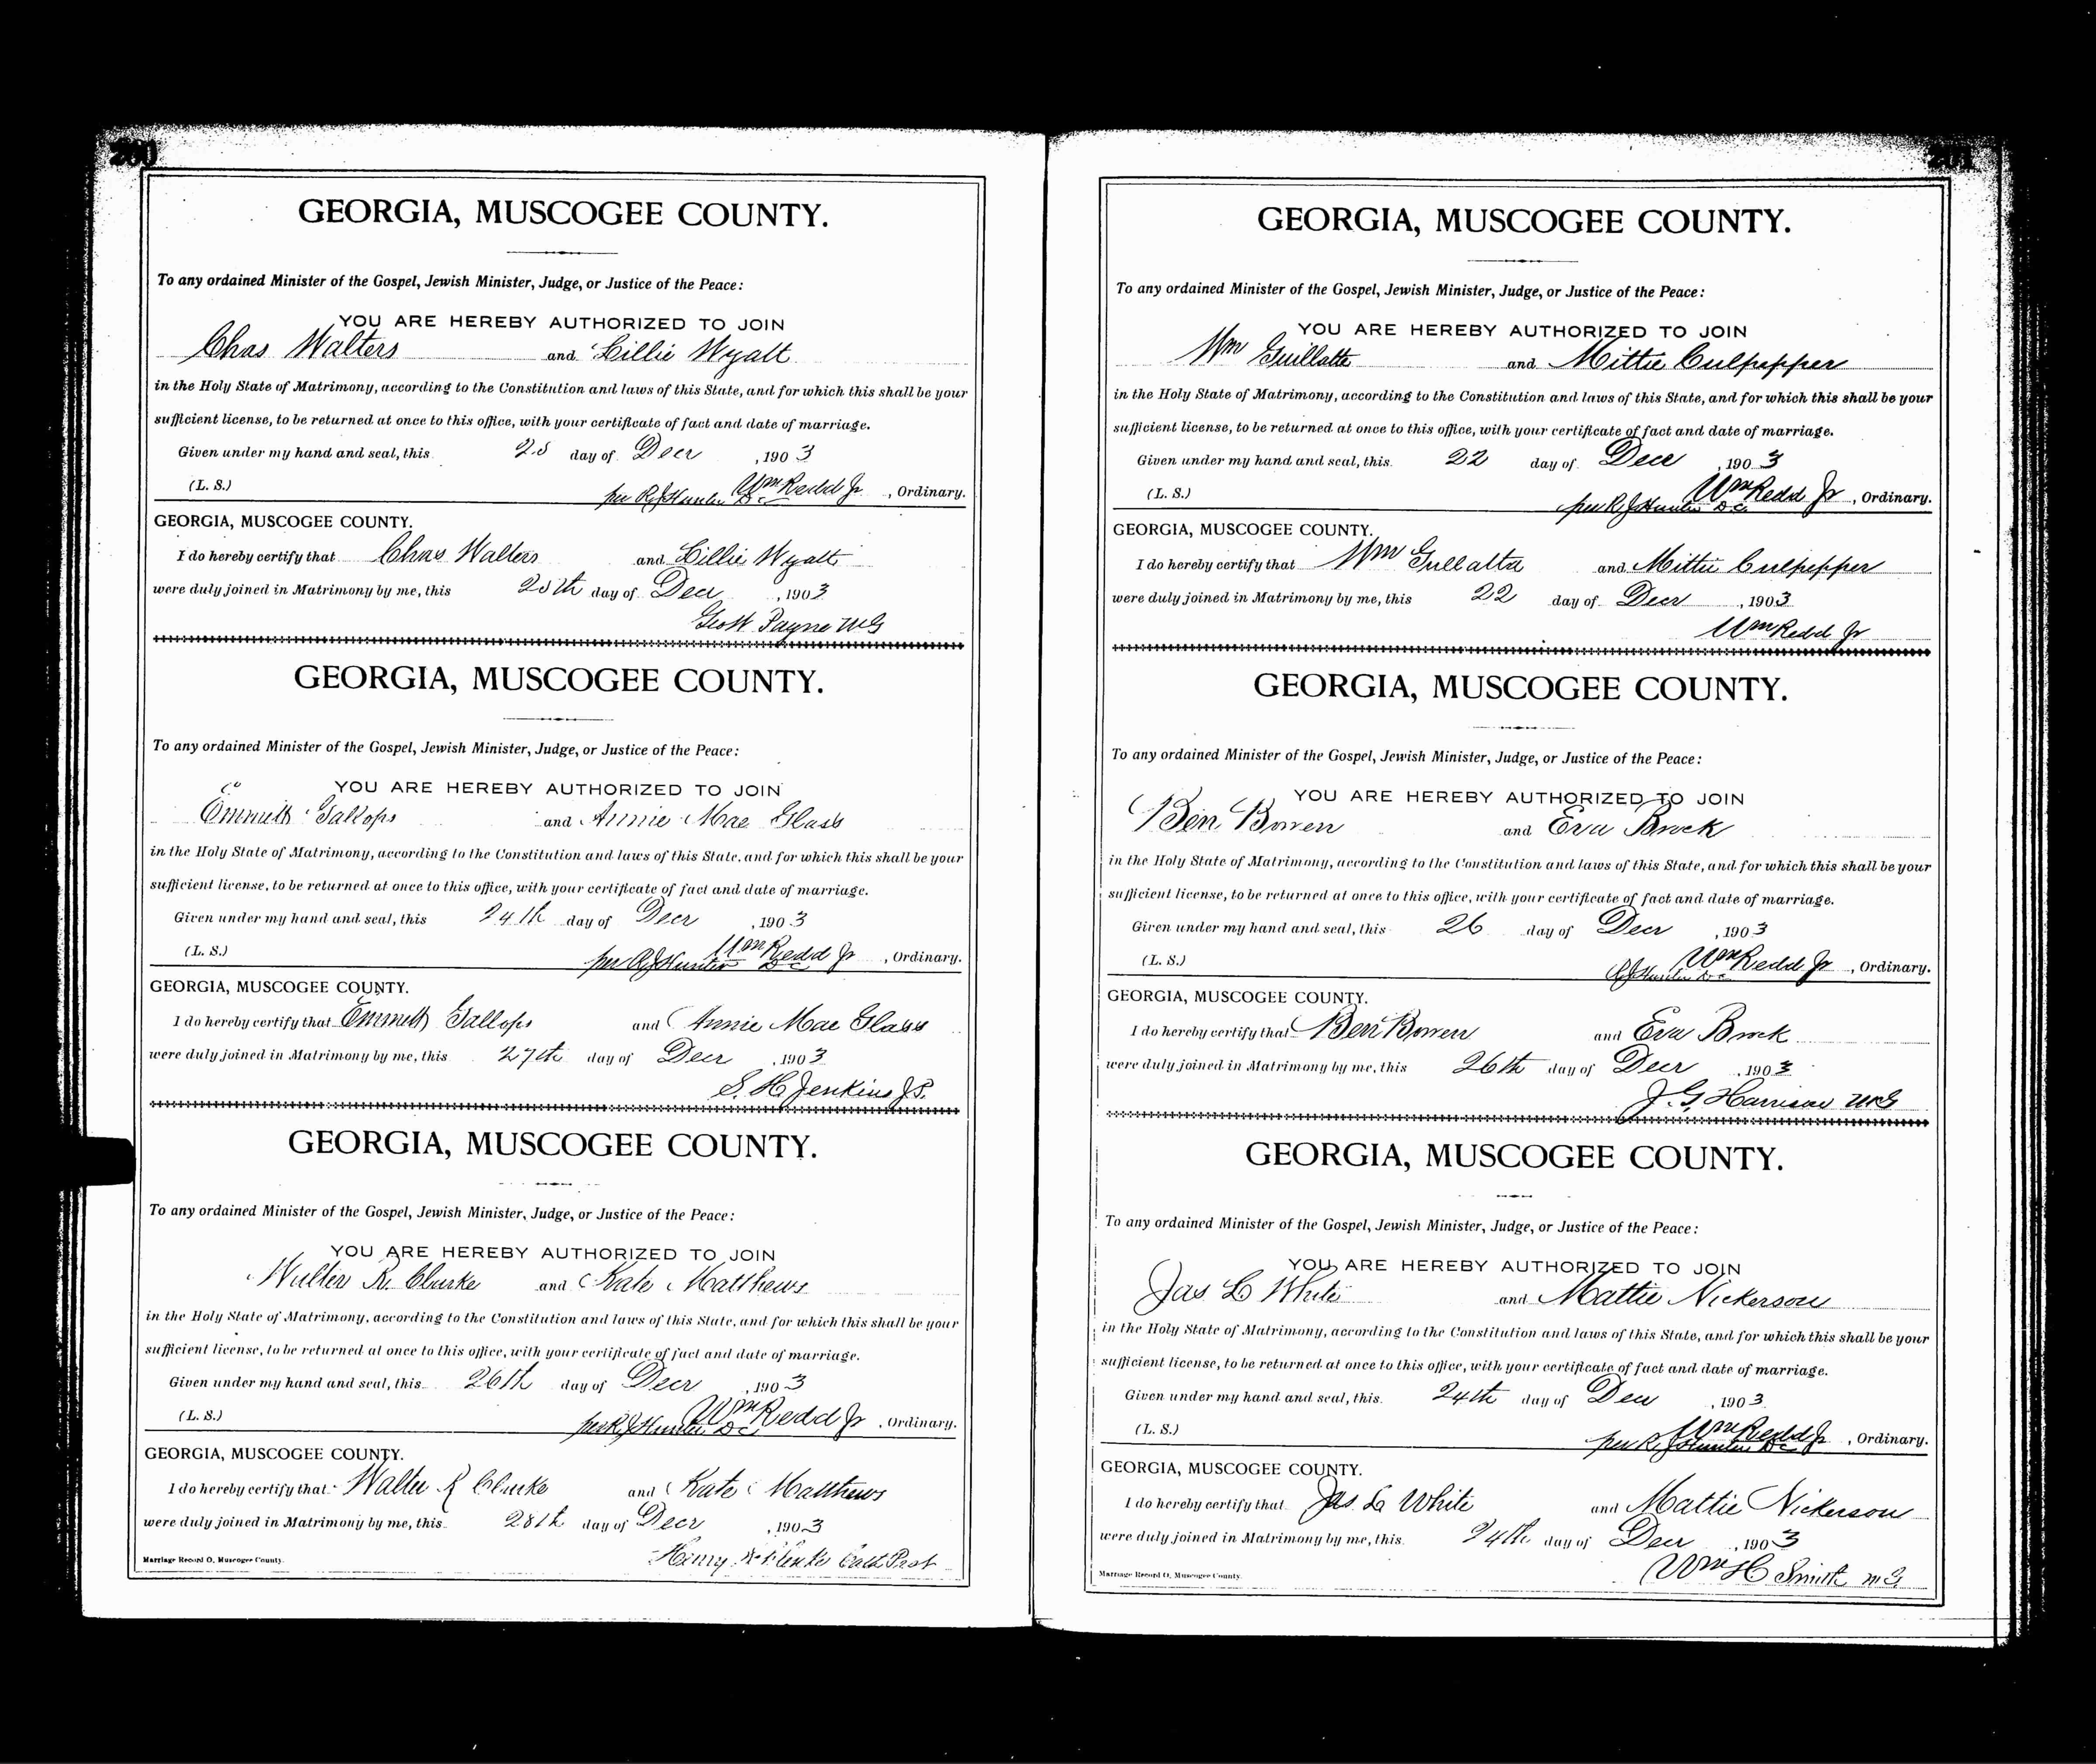 200
GEORGIA, MUSCOGEE COUNTY.
To any ordained Minister of the Gospel, Jewish Minister, Judge, or Justice of the Peace:
YOU ARE HEREBY AUTHORIZED TO JOIN
Chas Walters and Lillie Wyatt
in the Holy State of Matrimony, according to the Constitution and laws of this State, and for which this shall be your
sufficient license, to be returned at once to this office, with your certificate of fact and date of marriage.
Given under my hand and seal, this day of Decr , 1903
(L. S.) Wm Redd Jr , Ordinary.
per R J Hunter D C
GEORGIA, MUSCOGEE COUNTY.
I do hereby certify that Chas Walters and Lillie Wyatt
were duly joined in Matrimony by me, this day of Decr , 1903
Payne M G
GEORGIA, MUSCOGEE COUNTY.
To any ordained Minister of the Gospel, Jewish Minister, Judge, or Justice of the Peace:
YOU ARE HEREBY AUTHORIZED TO JOIN
Emmett Gallops and Annie Mae Glass
in the Holy State of Matrimony, according to the Constitution and laws of this State, and for which this shall be your
sufficient license, to be returned at once to this office, with your certificate of fact and date of marriage.
Given under my hand and seal, this 24th day of Decr , 1903
(L. S.) Wm Redd Jr , Ordinary.
per R J Hunter D C
GEORGIA, MUSCOGEE COUNTY.
I do hereby certify that Emmett Gallops and Annie Mae Glass
were duly joined in Matrimony by me, this 27th day of Decr , 1903
S. H. Jenkins J P.
GEORGIA, MUSCOGEE COUNTY.
To any ordained Minister of the Gospel, Jewish Minister, Judge, or Justice of the Peace:
YOU ARE HEREBY AUTHORIZED TO JOIN
Walter R. Clarke and Kate Matthews
in the Holy State of Matrimony, according to the Constitution and laws of this State, and for which this shall be your
sufficient license, to be returned at once to this office, with your certificate of fact and date of marriage.
Given under my hand and seal, this 26th day of Decr , 1903
(L. S.) Wm Redd Jr , Ordinary.
per R J Hunter D C
GEORGIA, MUSCOGEE COUNTY.
I do hereby certify that Walter R Clarke and Kate Matthews
were duly joined in Matrimony by me, this 28th day of Decr , 1903
Henry
Marriage Record O, Muscogee County.
201
GEORGIA, MUSCOGEE COUNTY.
To any ordained Minister of the Gospel, Jewish Minister, Judge, or Justice of the Peace:
YOU ARE HEREBY AUTHORIZED TO JOIN
Wm Guillatte and Mittie Culpepper
in the Holy State of Matrimony, according to the Constitution and laws of this State, and for which this shall be your
sufficient license, to be returned at once to this office, with your certificate of fact and date of marriage.
Given under my hand and seal, this 22 day of Decr , 1903
(L. S.) Wm Redd Jr , Ordinary.
per R J Hunter D C
GEORGIA, MUSCOGEE COUNTY.
I do hereby certify that Wm Gullatta and Mittie Culpepper
were duly joined in Matrimony by me, this 22 day of Decr , 1903
Wm Redd Jr
GEORGIA, MUSCOGEE COUNTY.
To any ordained Minister of the Gospel, Jewish Minister, Judge, or Justice of the Peace:
YOU ARE HEREBY AUTHORIZED TO JOIN
Ben Bowen and Eva Brock
in the Holy State of Matrimony, according to the Constitution and laws of this State, and for which this shall be your
sufficient license, to be returned at once to this office, with your certificate of fact and date of marriage.
Given under my hand and seal, this 26 day of Decr , 1903
(L. S.) Wm Redd Jr , Ordinary.
R J Hunter D C
GEORGIA, MUSCOGEE COUNTY.
I do hereby certify that Ben Bowen and Eva Brock
were duly joined in Matrimony by me, this 26th day of Decr , 1903
J. G. Harrison M G
GEORGIA, MUSCOGEE COUNTY.
To any ordained Minister of the Gospel, Jewish Minister, Judge, or Justice of the Peace:
YOU ARE HEREBY AUTHORIZED TO JOIN
Jas L White and Mattie Nickerson
in the Holy State of Matrimony, according to the Constitution and laws of this State, and for which this shall be your
sufficient license, to be returned at once to this office, with your certificate of fact and date of marriage.
Given under my hand and seal, this 24th day of Decr , 1903
(L. S.) Wm Redd Jr , Ordinary.
per R J Hunter D C
GEORGIA, MUSCOGEE COUNTY.
I do hereby certify that Jas L White and Mattie Nickerson
were duly joined in Matrimony by me, this 24th day of Decr , 1903
Wm H Smith M G
Marriage Record O, Muscogee County.